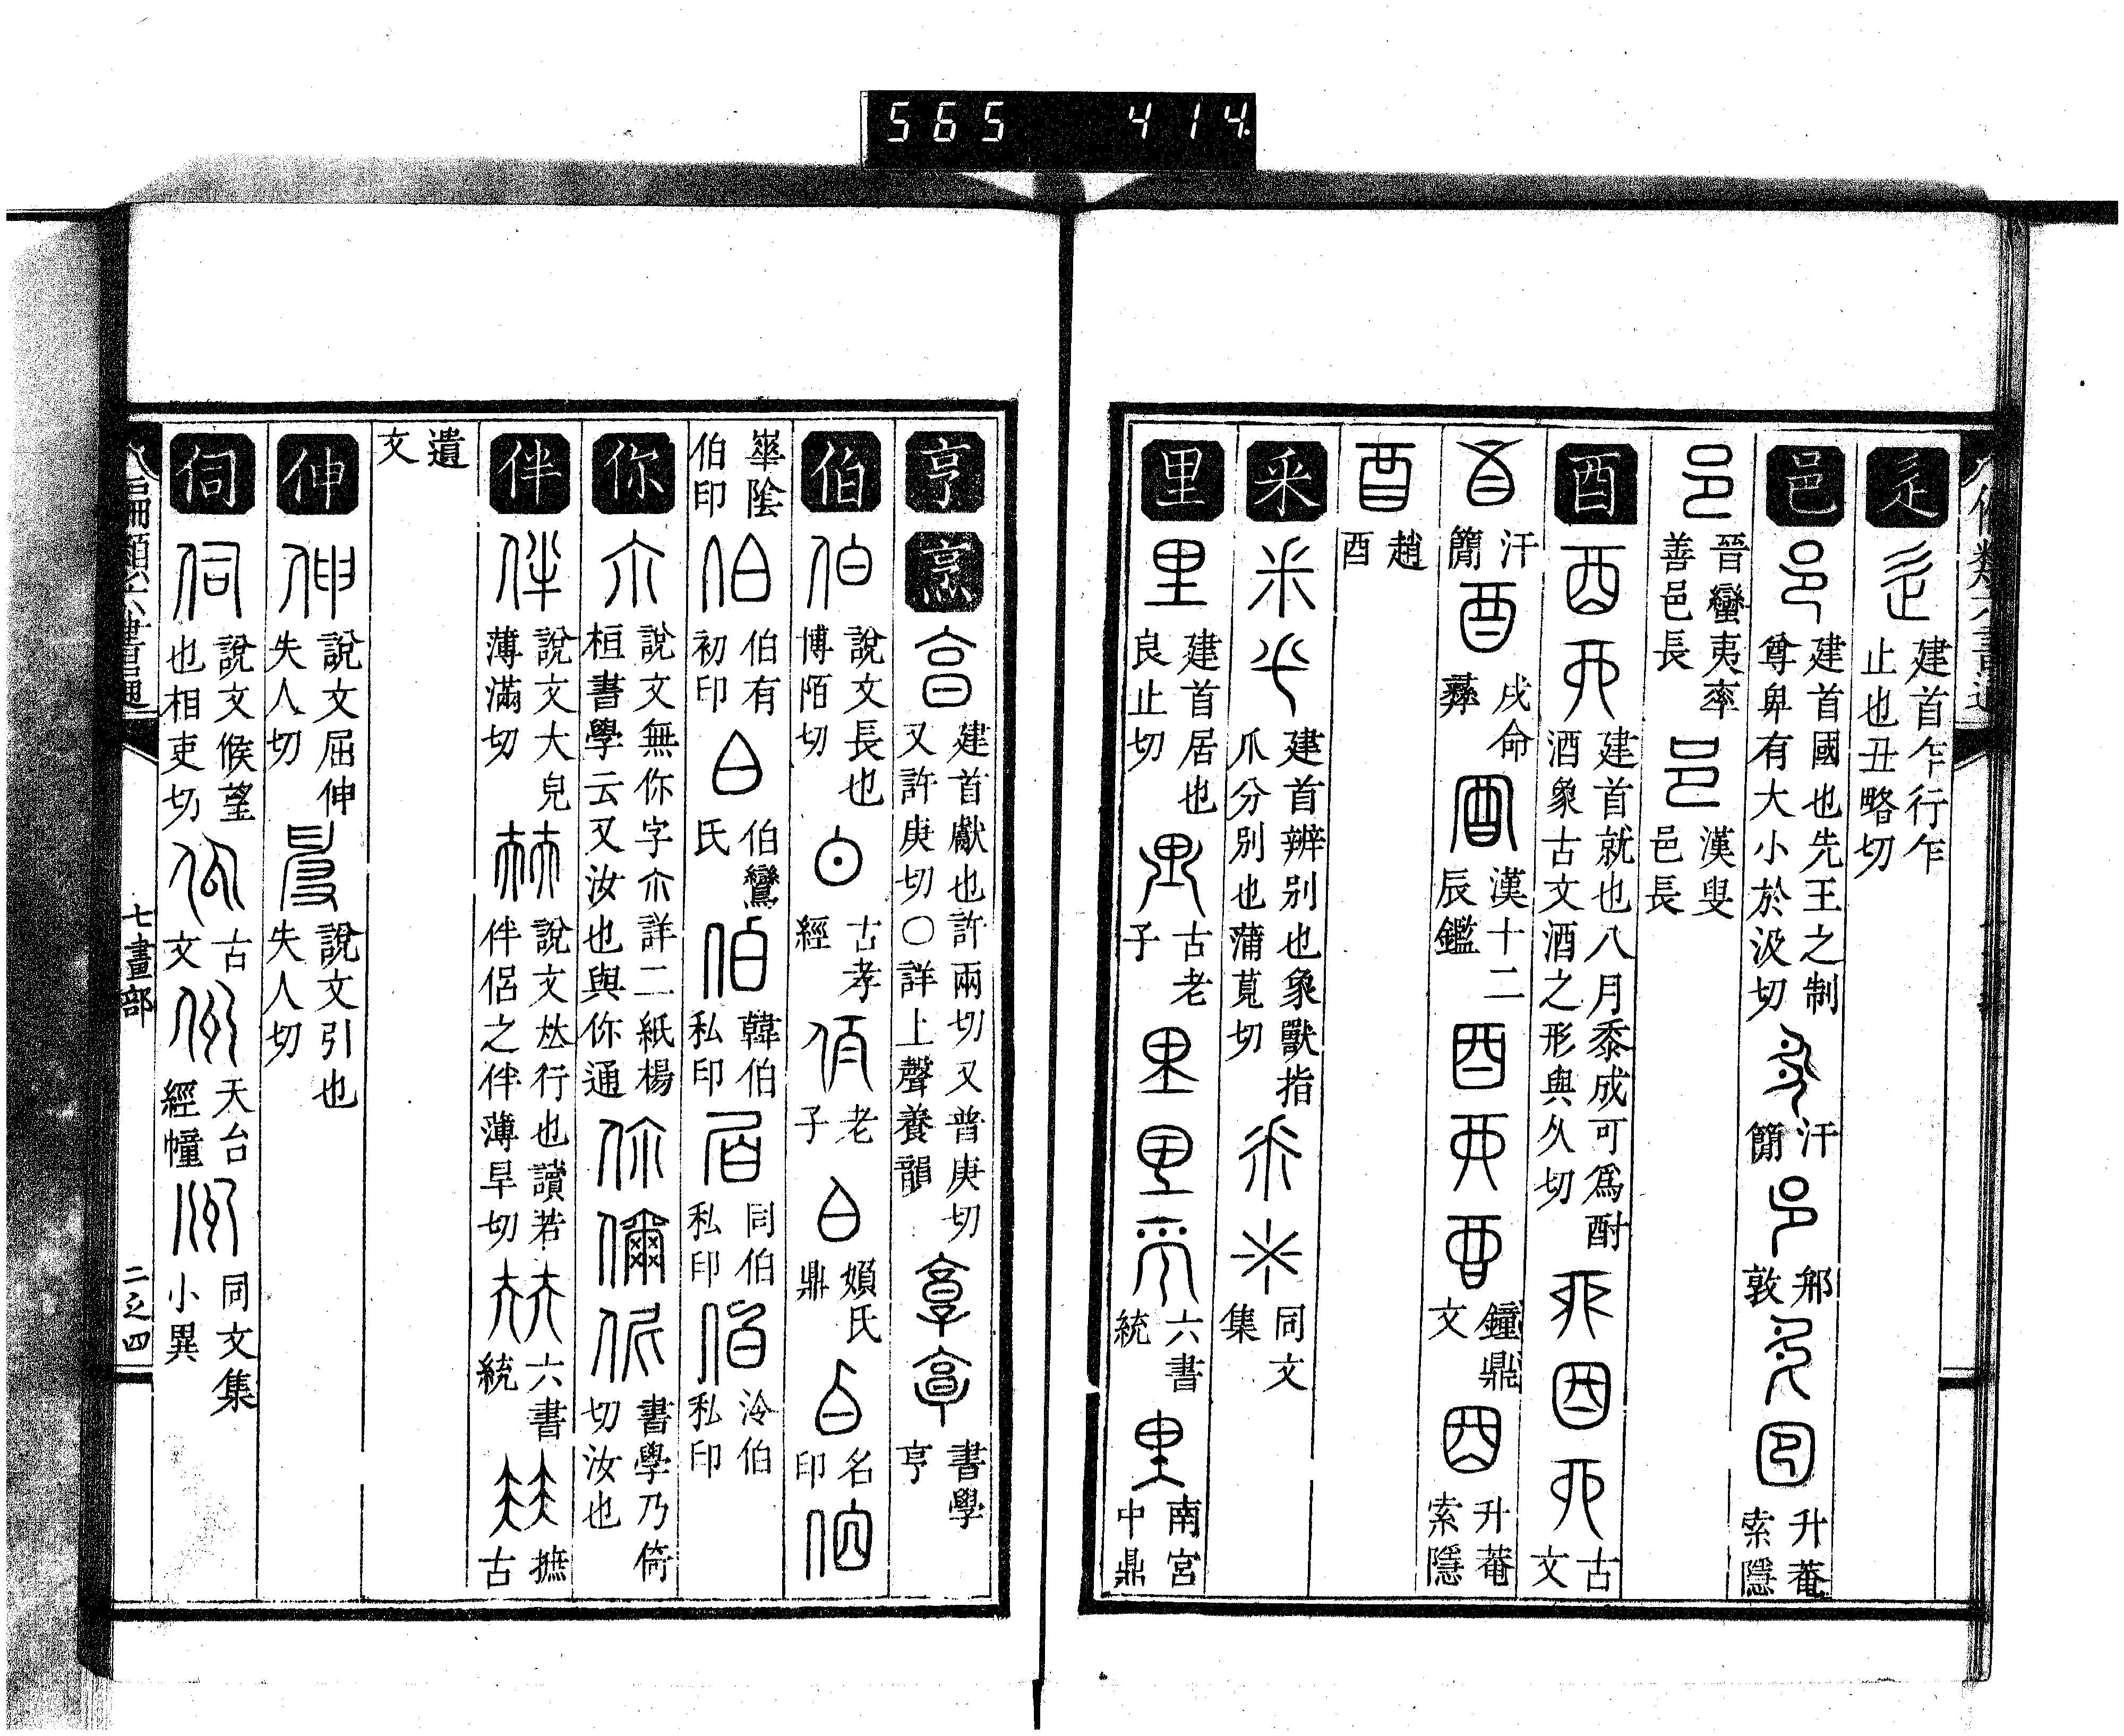 565 414
辵 建首乍行乍止也丑略切
邑 建首國也先王之制尊卑有大小於汲切 汗簡 邢敦 升菴索隱
晉蠻夷率善邑長 漢叟邑長
酉 建首就也八月黍成可爲酎酒象古文酒之形與久切 古文
汗簡 戌命彝 漢十二辰鑑 鐘鼎文 升菴索隱
趙酉
釆 建首辨别也象獸指爪分别也蒲莧切 同文集
里 建首居也良止切 古老子 六書統 南宮中鼎
亨 烹 建首獻也許兩切又普庚切又許庚切○詳上聲養韻 書學亨
伯 說文長也博陌切 古孝經 老子 頮氏鼎 名印
崋陰伯印 伯有初印 伯鸞氏 韓伯私印 同伯私印 泠伯私印
你 說文無你字尒詳二紙楊桓書學云又汝也與你通 書學乃倚切汝也
伴 說文大皃薄滿切 說文㚘行也讀若伴侶之伴薄旱切 六書統 摭古
遺文
伸 說文屈伸失人切 說文引也失人切
伺 說文候望也相吏切 古文 天台經幢 同文集小異
七畫部 二之四